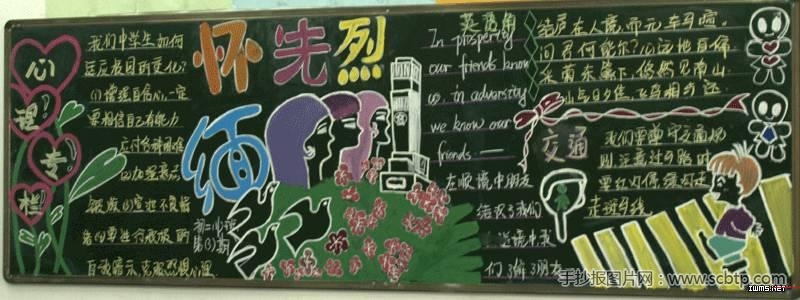 心理专栏
我们中学生如何
适应校园的变化?
(1)增强自信心,一定
要相信自己有能力
应付各种困难
缅怀先烈
初二(1)班
第(3)期
英语角
In prosperity
our friends know
us, in adversity
we know our
friends —
在顺境中朋友
结识了我们
在逆境中我
们了解了朋友
结庐在人境,而无车马喧。
问君何能尔?心远地自偏。
采菊东篱下,悠然见南山。
山气日夕佳,飞鸟相与还。
交通
我们要遵守交通规
则,注意过马路时
要红灯停绿灯走
走斑马线
手抄报图片网:www.scbtp.com
IWMS.NET